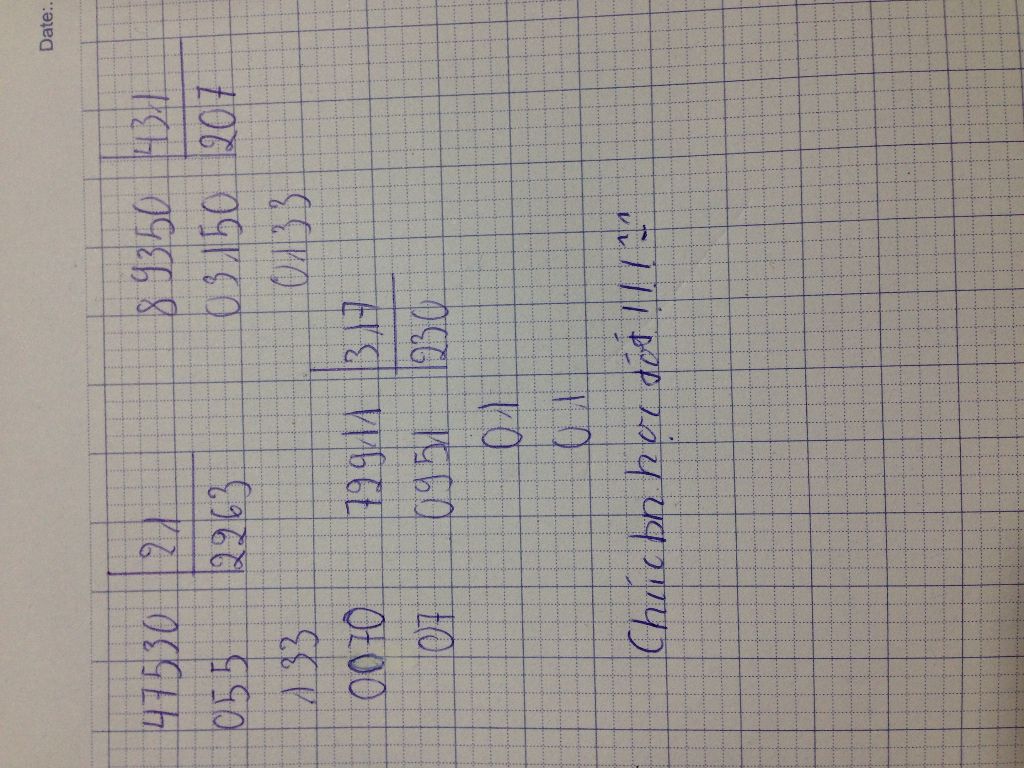 Date:.
47530 21 89350 431
055 2263 03150 207
133 0133
0070 72911 317
07 0951 230
01
01
Chúc bn học tốt !!!